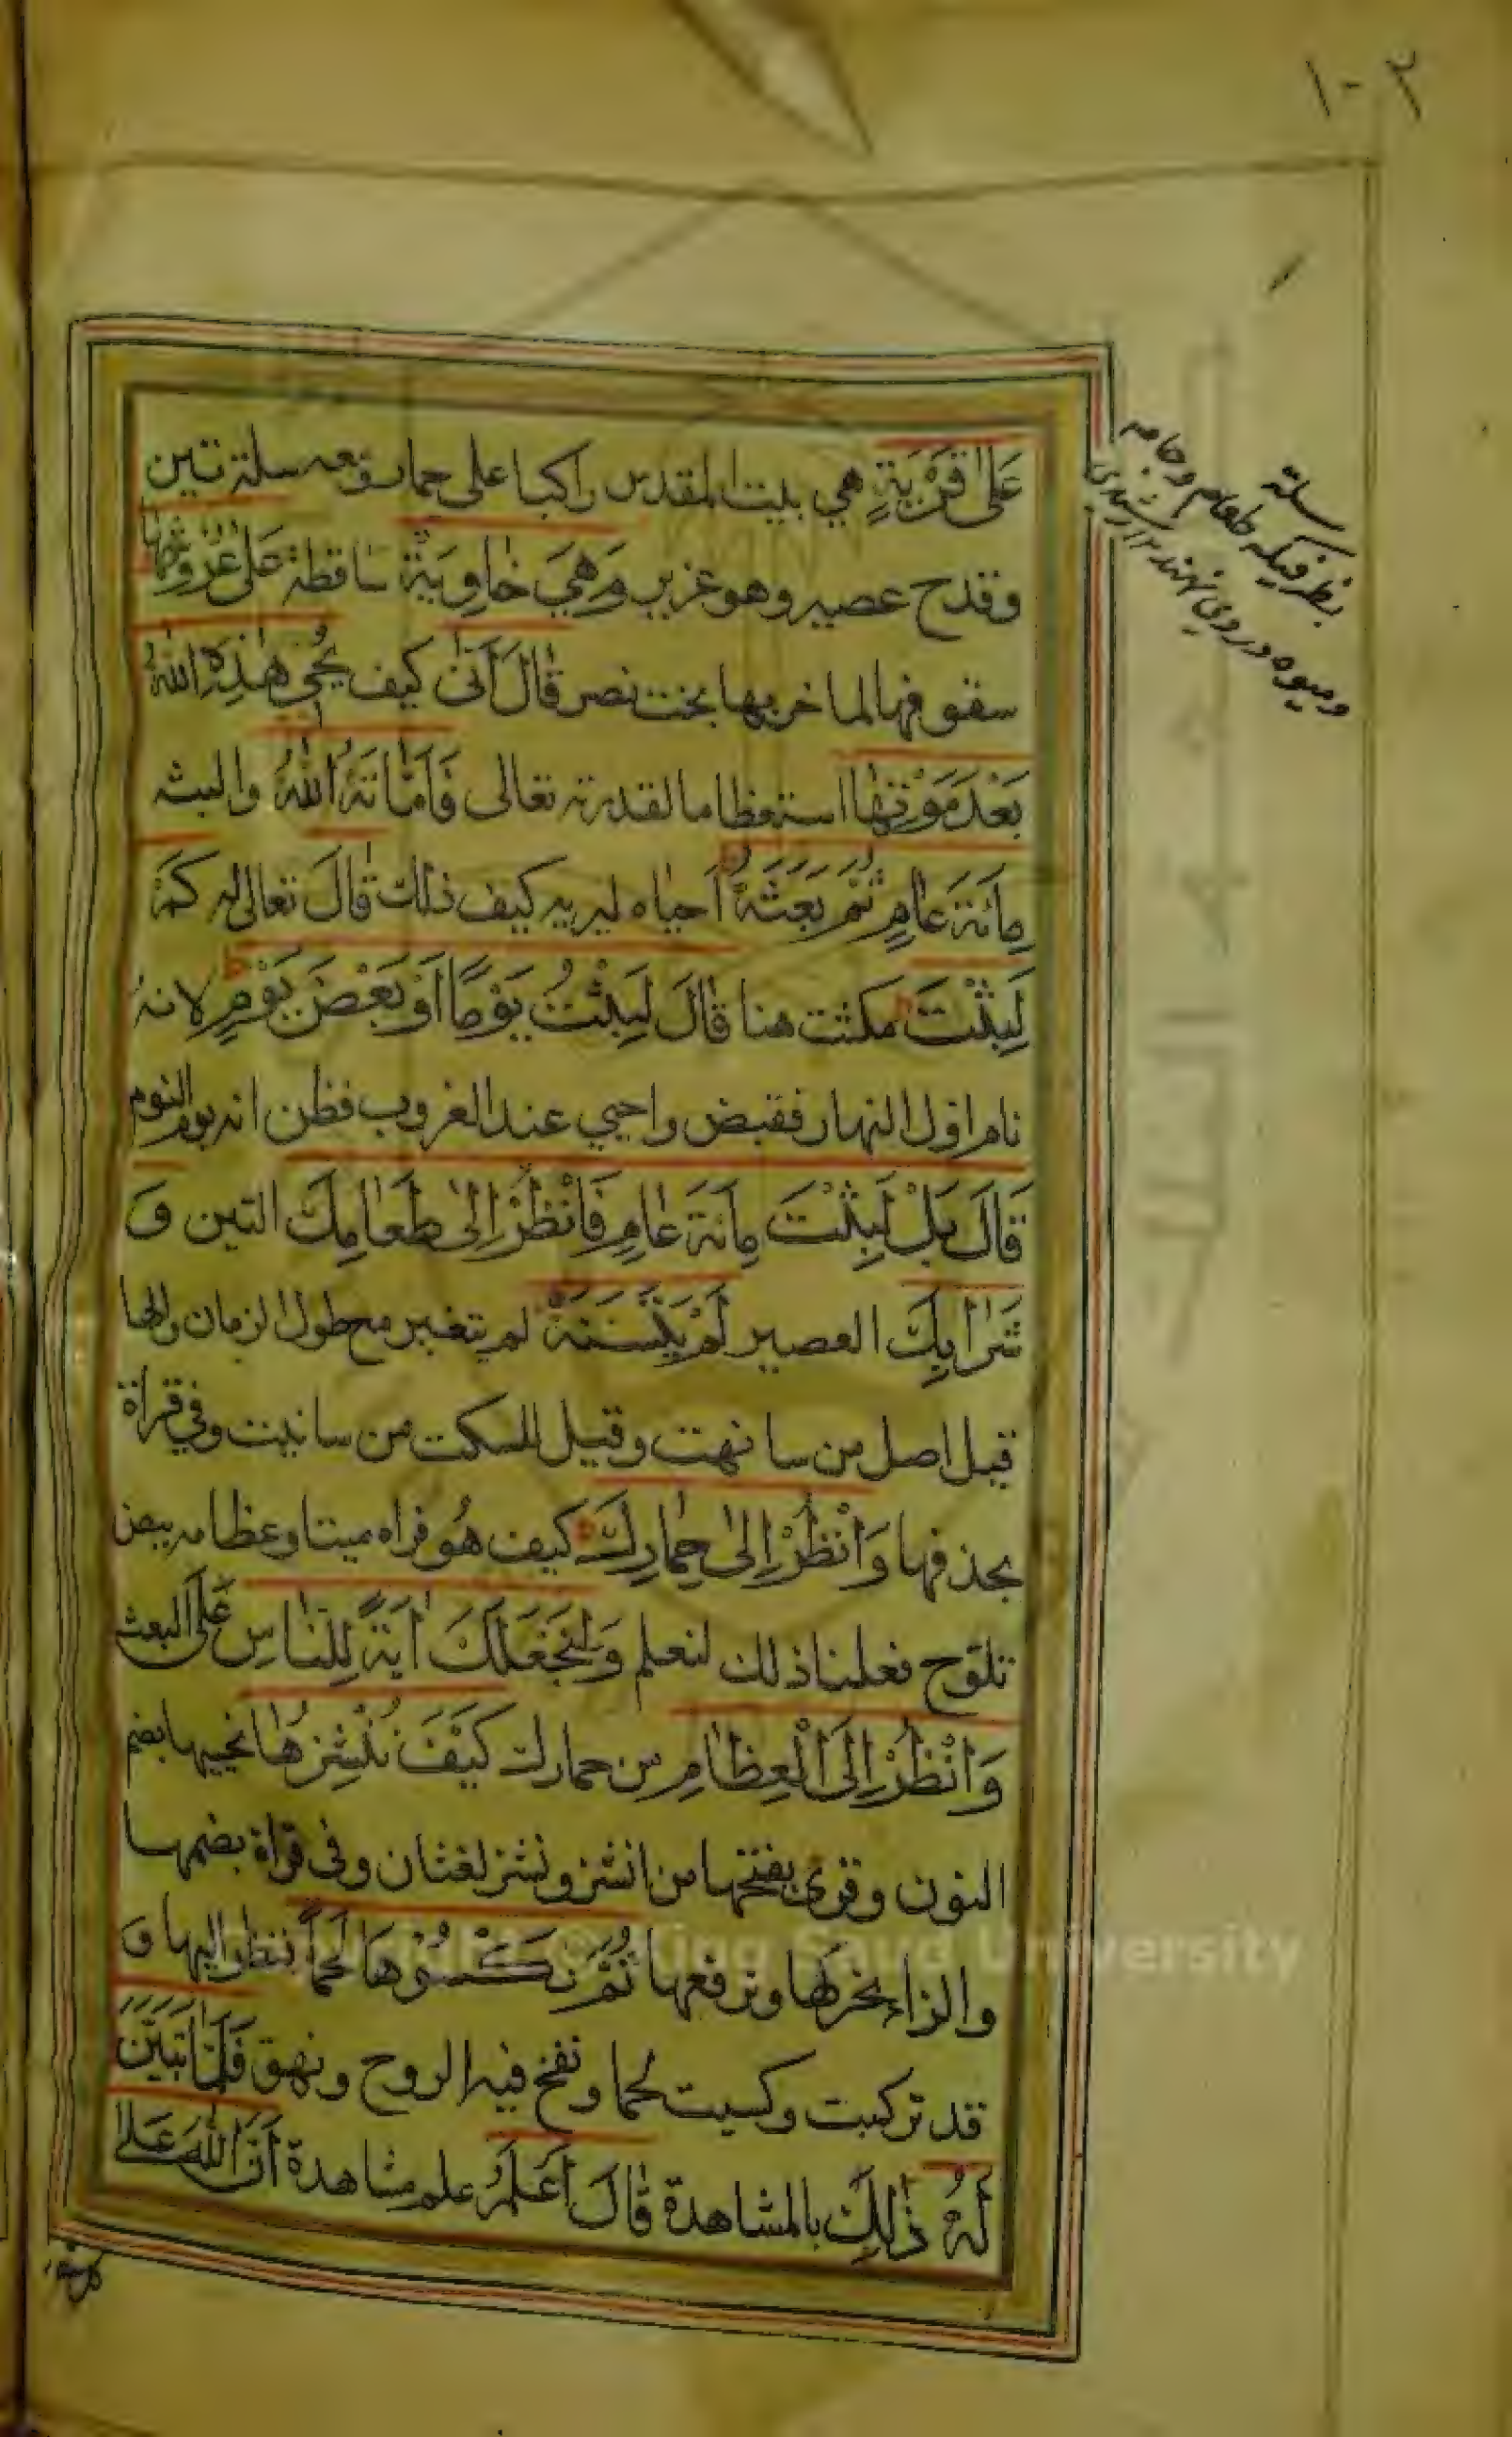 ١٠٢
سلة
بظرفیکه طعام وجامه
ومیوه در وی نهند
عَلىٰ قَرْيَةٍ هي بيت المقدس راكبا على حمار ومعه سلة تين
وقدح عصير وهو عزير وَهِيَ خٰاوِيَةٌ ساقطة عَلىٰ عُرُوشِهٰا
سقوفها لما خربها بخت نصر قٰالَ اَنّىٰ كيف يُحْيي هٰذِهِ اللّٰهُ
بَعْدَ مَوْتِهٰا استعظاما لقدرته تعالى فَاَمٰاتَهُ اللّٰهُ والبثه
مِائَةَ عٰامٍ ثُمَّ بَعَثَهُ احياه ليريه كيف ذلك قٰالَ تعالى له كَمْ
لَبِثْتَ مكثت هنا قٰالَ لَبِثْتُ يَوْمًا اَوْ بَعْضَ يَوْمٍ لانه
نام اول النهار فقبض واحيي عند الغروب فظن انه يوم النوم
قٰالَ بَلْ لَبِثْتَ مِائَةَ عٰامٍ فَانْظُرْ اِلىٰ طَعٰامِكَ التين وَ
شَرٰابِكَ العصير لَمْ يَتَسَنَّهْ لم يتغير مع طول الزمان والها
قيل اصل من سانهت وقيل للسكت من سانيت وفي قراة
بحذفها وَانْظُرْ اِلىٰ حِمٰارِكَ كيف هُو فراه ميتا وعظامه بيض
تلوح فعلنا ذلك لنعلم وَلِنَجْعَلَكَ اٰيَةً لِلنّٰاسِ عَلَى البعث
وَانْظُرْ اِلَى الْعِظٰامِ من حمارك كَيْفَ نُنْشِزُهٰا نحييها بضم
النون وقرئ بفتحها من انشز ونشز لغتان وفي قراة بضمها
والزاء نحركها ونرفعها ثُمَّ نَكْسُوْهٰا لَحْمًا فنظر اليها وَ
قد تركبت وكسيت لحما ونفخ فيه الروح ونهق فَلَمّٰا تَبَيَّنَ
لَهُ ذٰلِكَ بالمشاهدة قٰالَ اَعْلَمُ علم مشاهدة اَنَّ اللّٰهَ عَلىٰ
© King Saud University